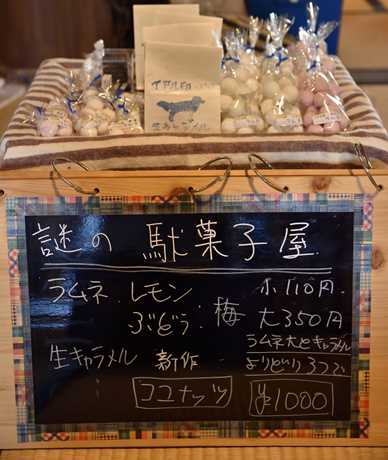 謎の駄菓子屋
ラムネ レモン 小110円
ぶどう 梅 大350円
ラムネ大とキャラメル
よりどり3つで
生キャラメル 新作
ココナッツ ¥1000